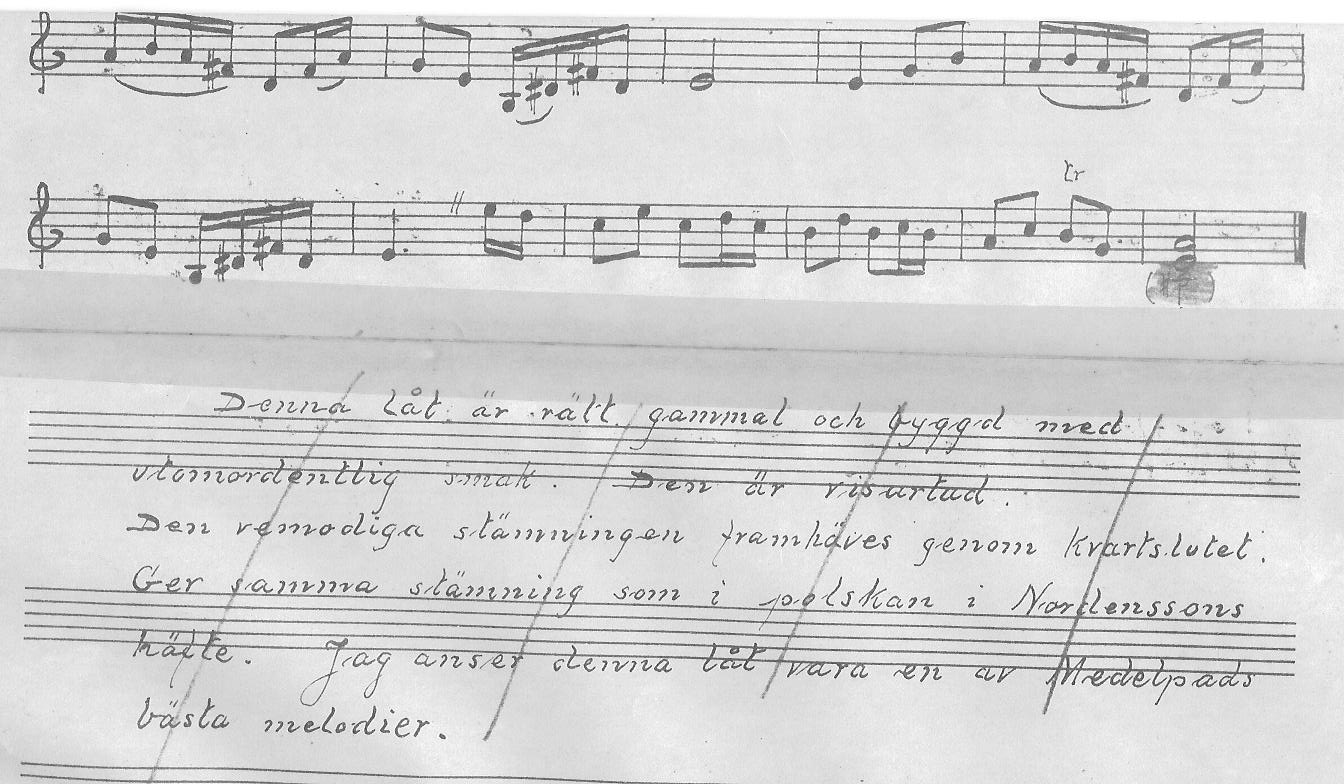 tr
Denna låt är rätt gammal och byggd med
utomordentlig smak. Den är visartad.
Den vemodiga stämningen framhäves genom kvartslutet.
Ger samma stämning som i polskan i Nordenssons
häfte. Jag anser denna låt vara en av Medelpads
bästa melodier.